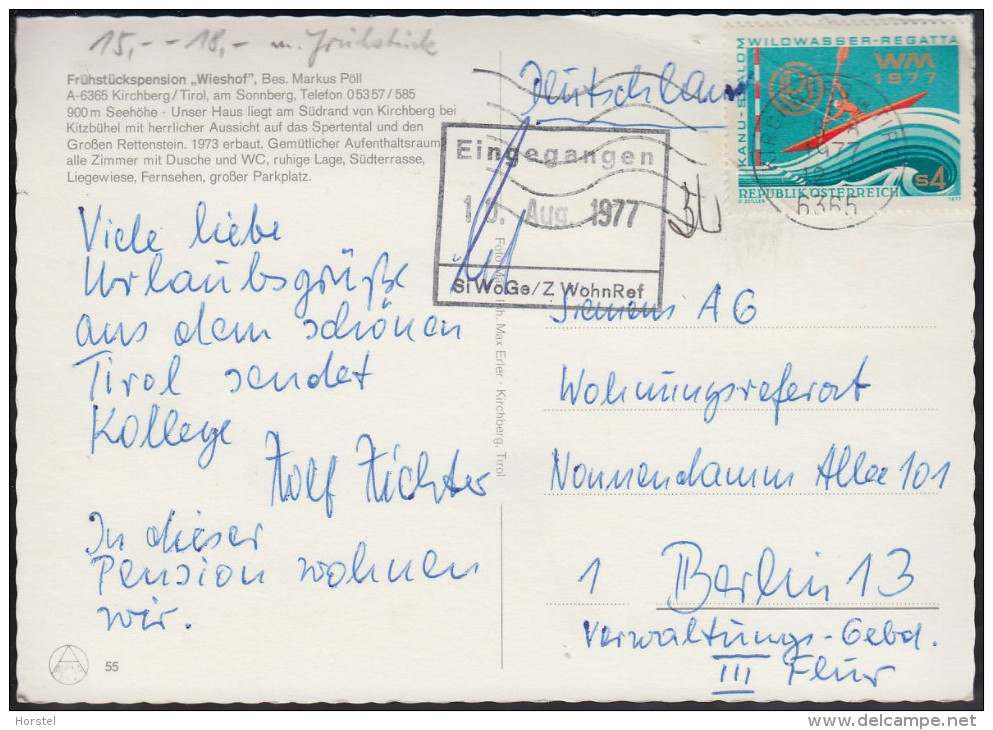 15,- - 18,- m. Frühstück
Frühstückspension „Wieshof", Bes. Markus Pöll
A-6365 Kirchberg/Tirol, am Sonnberg, Telefon 0 53 57 / 585
900 m Seehöhe · Unser Haus liegt am Südrand von Kirchberg bei
Kitzbühel mit herrlicher Aussicht auf das Spertental und den
Großen Rettenstein. 1973 erbaut. Gemütlicher Aufenthaltsraum,
alle Zimmer mit Dusche und WC, ruhige Lage, Südterrasse,
Liegewiese, Fernsehen, großer Parkplatz.
Viele liebe
Urlaubsgrüße
aus dem schönen
Tirol sendet
Kollege
Rolf Richter
In dieser
Pension wohnen
wir.
55
Deutschland
Eingegangen
Aug. 1977
SiWoGe/Z WohnRef
KANU-SLALOM WILDWASSER-REGATTA
WM
1977
REPUBLIK ÖSTERREICH
S4
O. ZEILLER
1977
1977
6365
Max Erler · Kirchberg, Tirol
Siemens AG
Wohnungsreferat
Nonnendamm Allee 101
1 Berlin 13
Verwaltungs-Gebd.
III Flur
Horstel
www.delcampe.net